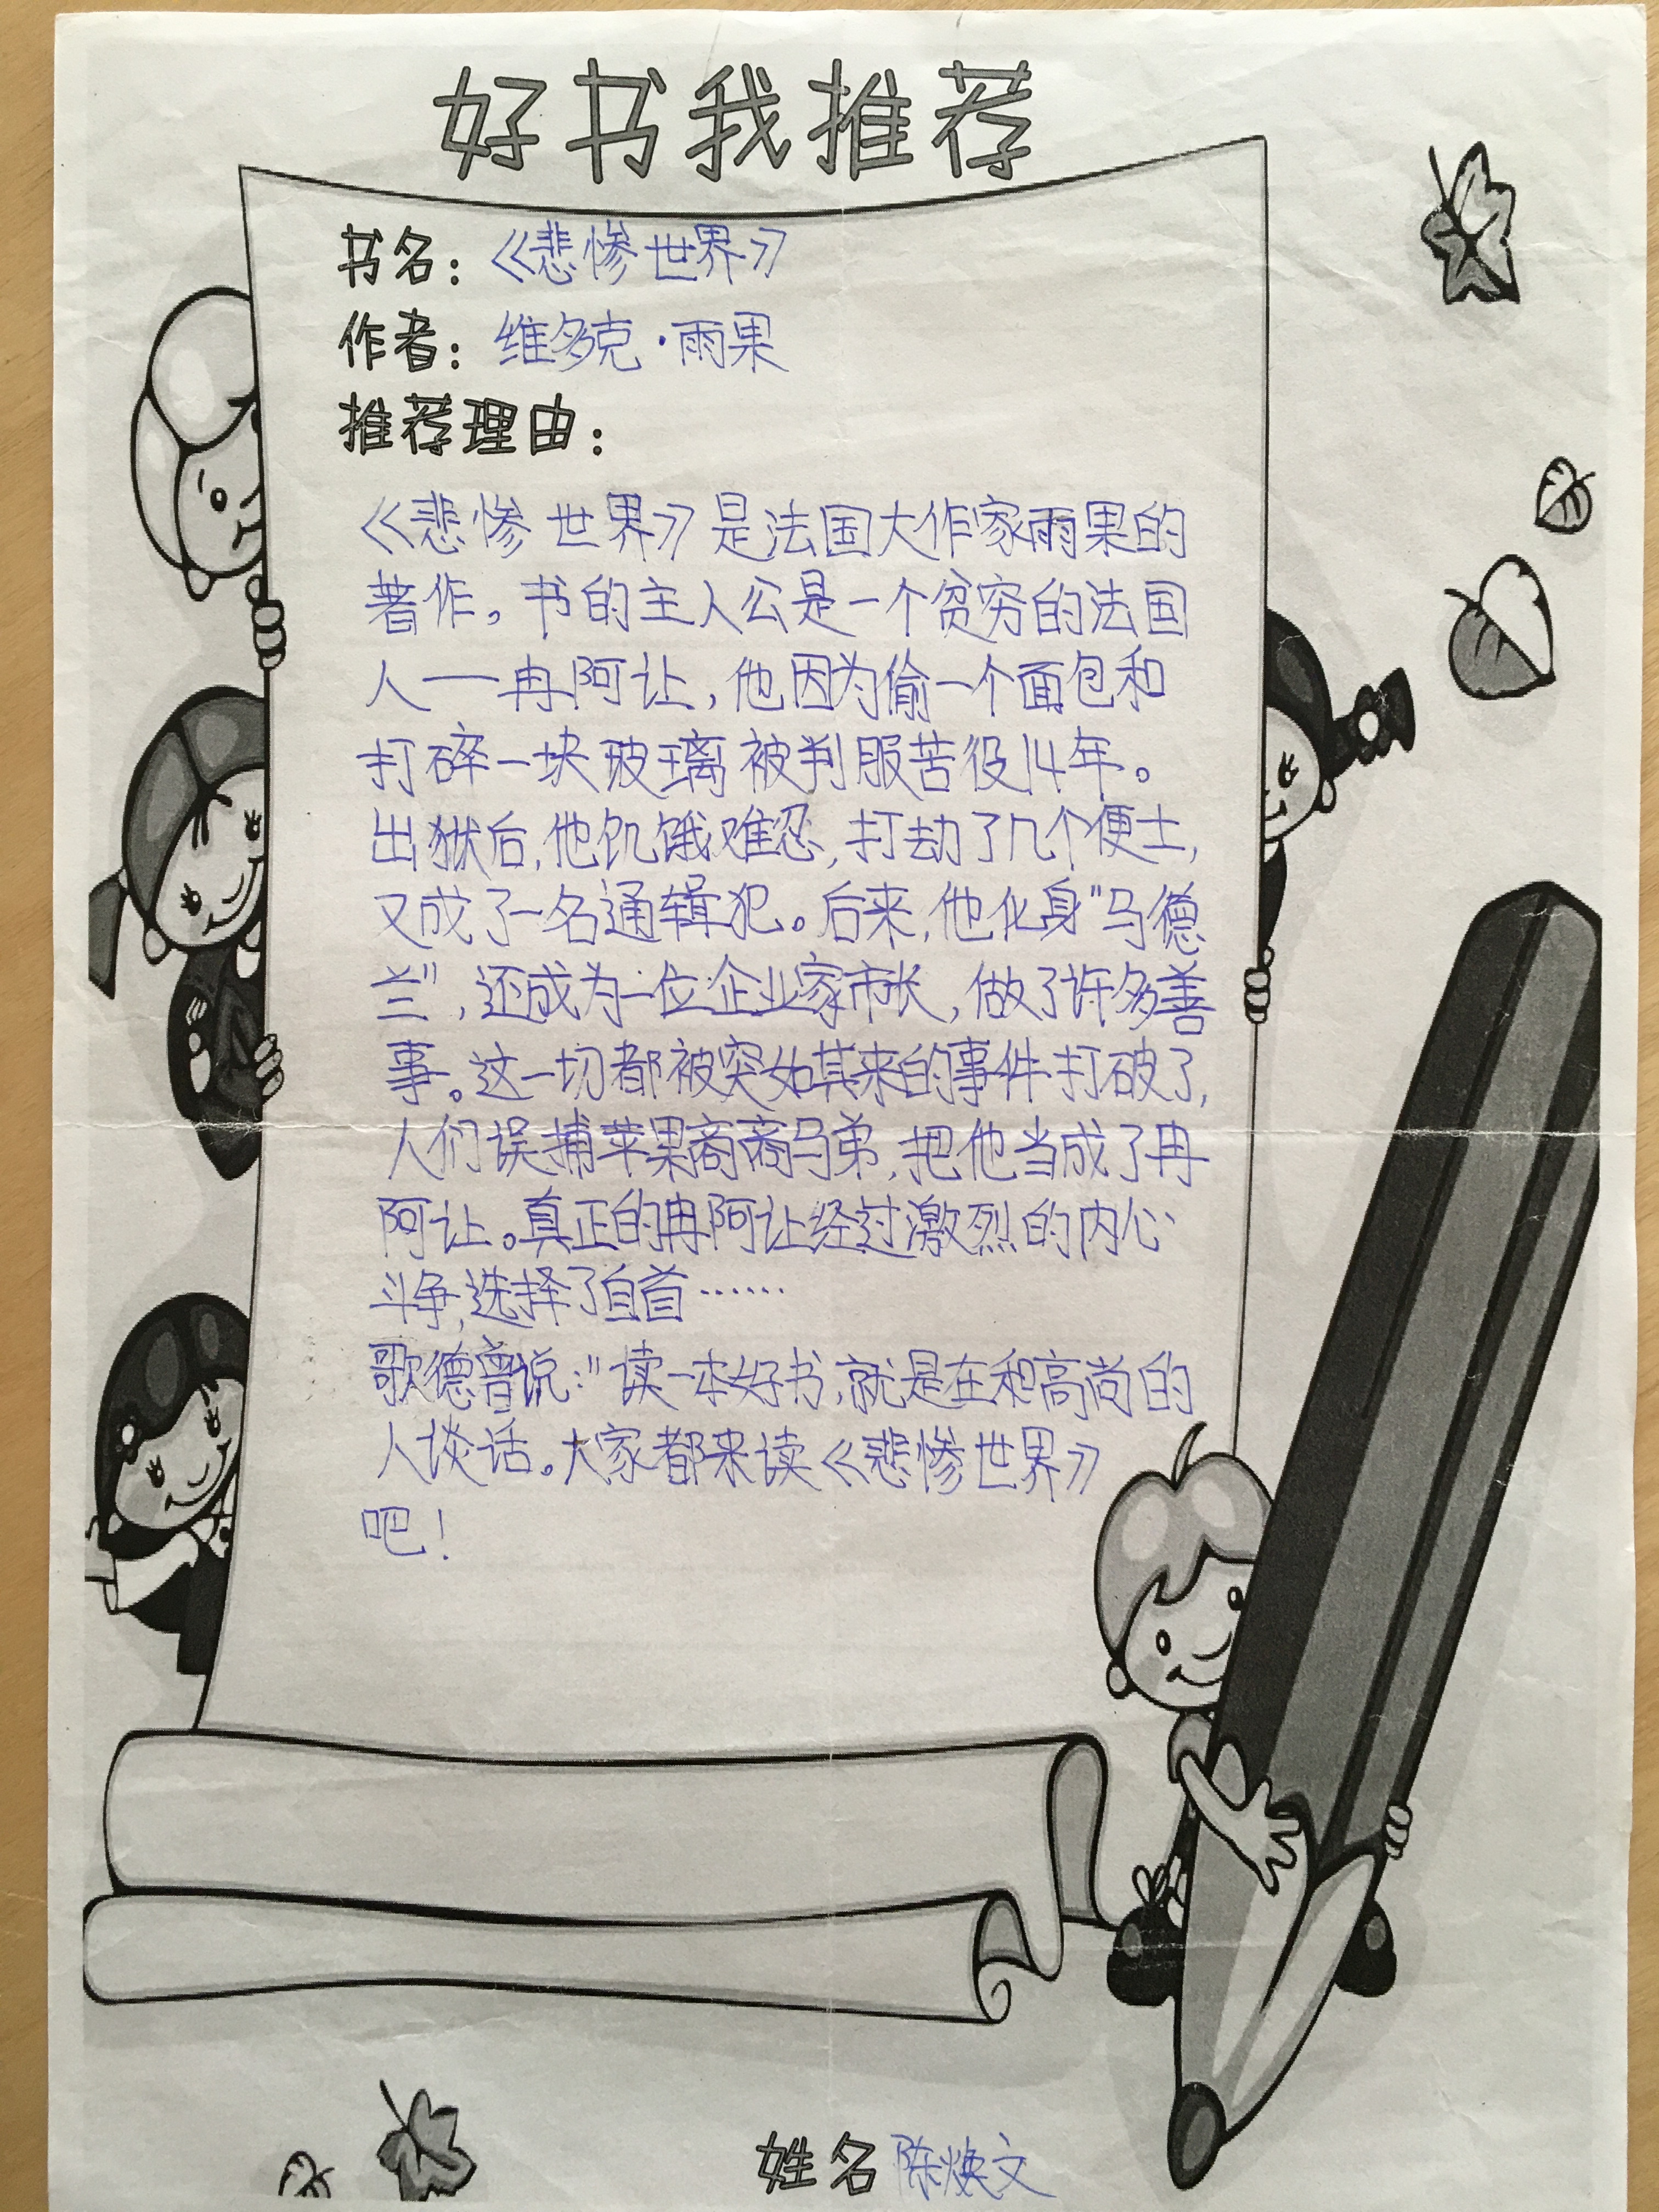 好书我推荐
书名：《悲惨世界》
作者：维多克·雨果
推荐理由：
《悲惨世界》是法国大作家雨果的
著作。书的主人公是一个贫穷的法国
人——冉阿让，他因为偷一个面包和
打碎一块玻璃被判服苦役14年。
出狱后，他饥饿难忍，打劫了几个便士，
又成了一名通辑犯。后来，他化身"马德
兰"，还成为一位企业家市长，做了许多善
事。这一切都被突如其来的事件打破了，
人们误捕苹果商商马弟，把他当成了冉
阿让。真正的冉阿让经过激烈的内心
斗争，选择了自首……
歌德曾说："读一本好书，就是在和高尚的
人谈话。大家都来读《悲惨世界》
吧！
姓名 陈焕文